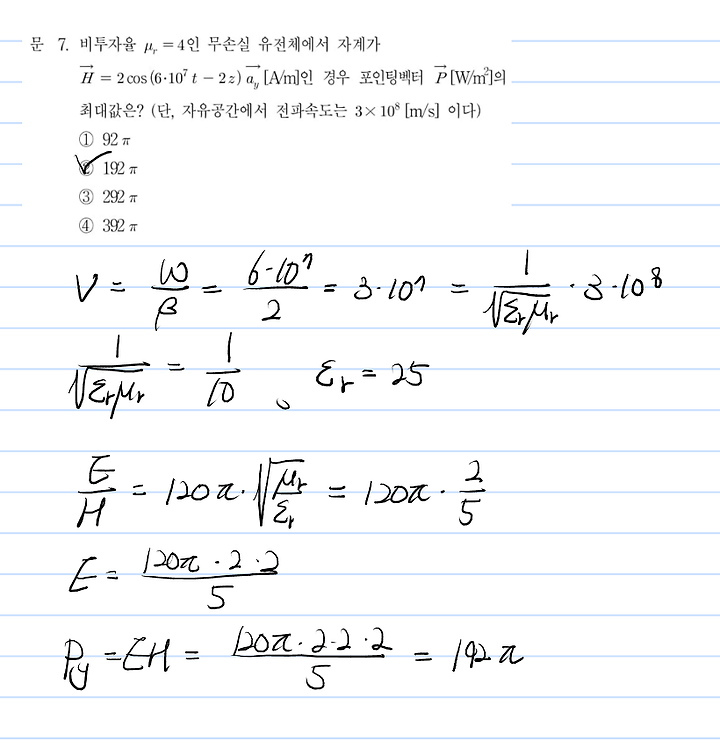 문 7. 비투자율 μᵣ = 4인 무손실 유전체에서 자계가
H⃗ = 2cos(6·10⁷ t − 2z) a⃗ᵧ [A/m]인 경우 포인팅벡터 P⃗ [W/m²]의
최대값은? (단, 자유공간에서 전파속도는 3×10⁸ [m/s] 이다)
① 92π
② 192π
③ 292π
④ 392π
V = ω/β = 6·10⁷/2 = 3·10⁷ = 1/√(εᵣμᵣ) · 3·10⁸
1/√(εᵣμᵣ) = 1/10 。 εᵣ = 25
E/H = 120π·√(μᵣ/εᵣ) = 120π · 2/5
E = 120π·2·2/5
Py = EH = 120π·2·2·2/5 = 192π